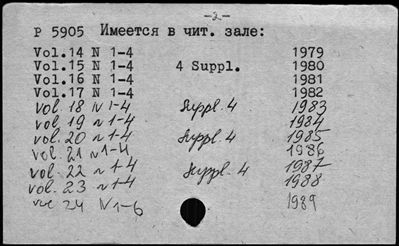 -2-
P 5905 Имеется в чит. зале:
Vol.14 N 1-4 1979
Vol.15 N 1-4 4 Suppl. 1980
Vol.16 N 1-4 1981
Vol.17 N 1-4 1982
vol. 18 N 1-4 Suppl. 4 1983
vol. 19 N 1-4 1984
vol. 20 N 1-4 Suppl. 4 1985
vol. 21 N 1-4 1986
vol. 22 N 1-4 Suppl. 4 1987
vol. 23 N 1-4 1988
vol 24 N 1-6 1989